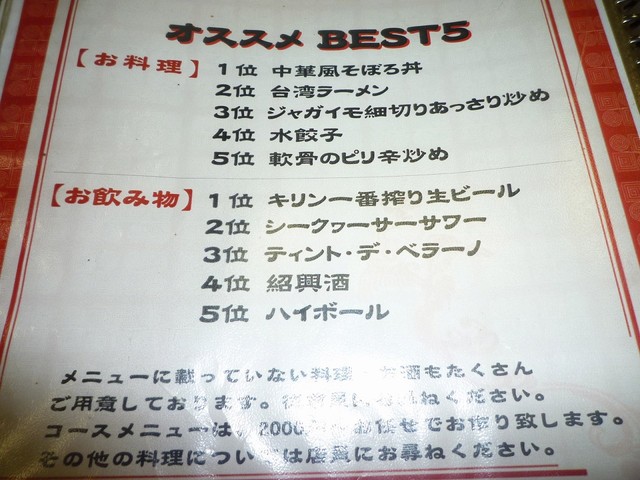 オススメ BEST5
【お料理】 1位 中華風そぼろ丼
2位 台湾ラーメン
3位 ジャガイモ細切りあっさり炒め
4位 水餃子
5位 軟骨のピリ辛炒め
【お飲み物】 1位 キリン一番搾り生ビール
2位 シークヮーサーサワー
3位 ティント・デ・ベラーノ
4位 紹興酒
5位 ハイボール
メニューに載っていない料理 お酒もたくさん
ご用意しております。 ねください。
コースメニューは、2000 お任せでお作り致します。
その他の料理については店員にお尋ねください。